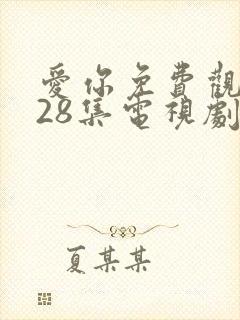 愛你免費觀
28集電視劇
夏某某